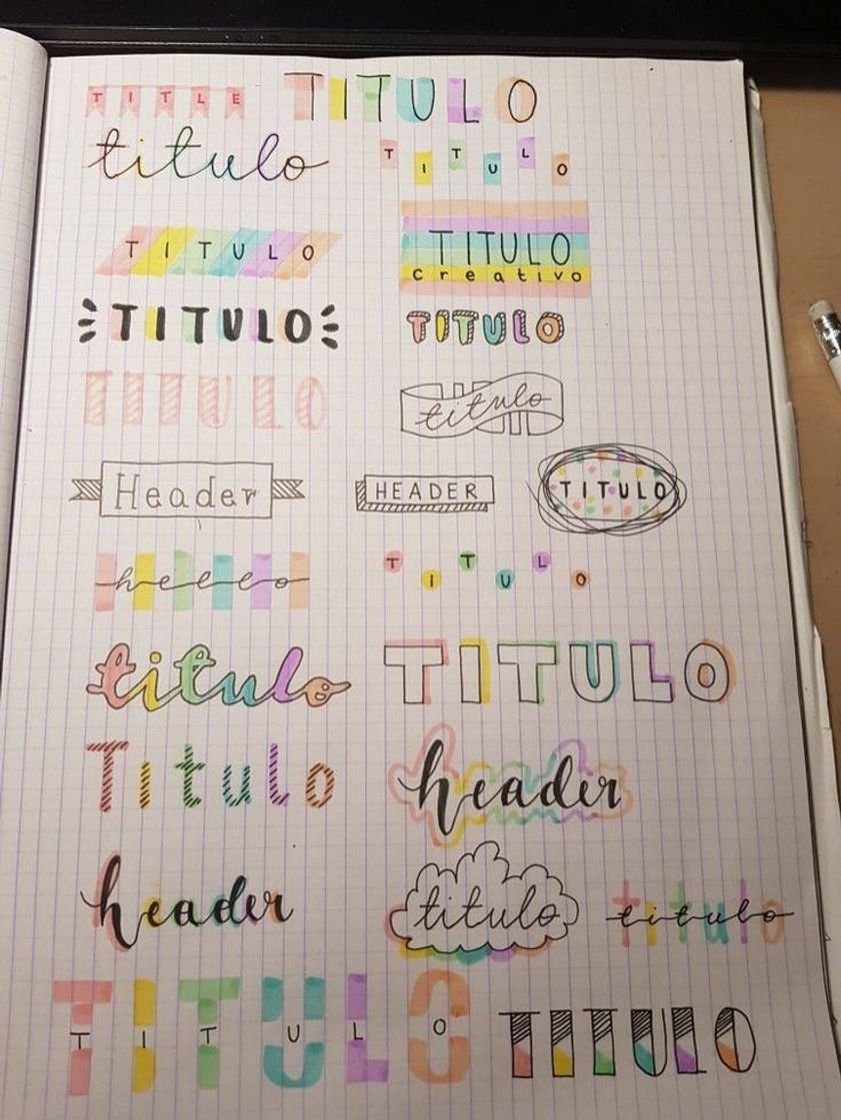 TITLE TITULO
titulo TITULO
TITULO TITULO
creativo
TITULO TITULO
TITULO titulo
Header HEADER TITULO
hello TITULO
titulo TITULO
Titulo header
header titulo titulo
TITULO TITULO